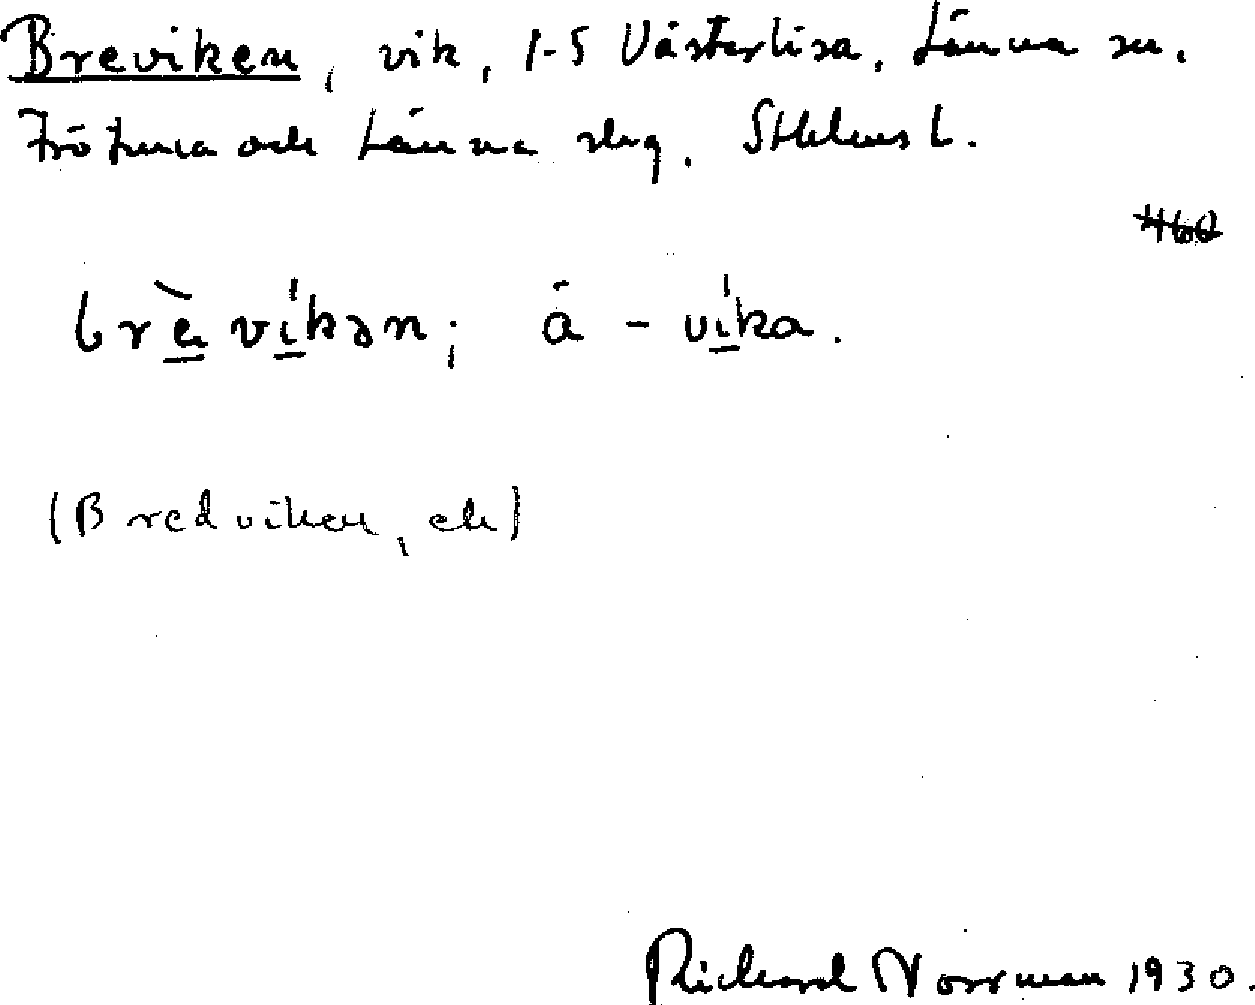 Breviken, vik, 1-5 Västerlisa, Länna sn.
Frötuna och Länna slg. Sthlms l.
460
brè̱ ví̱kən; á - ví̱ka.
(Bredviken, ek)
Richard Norrman 1930.